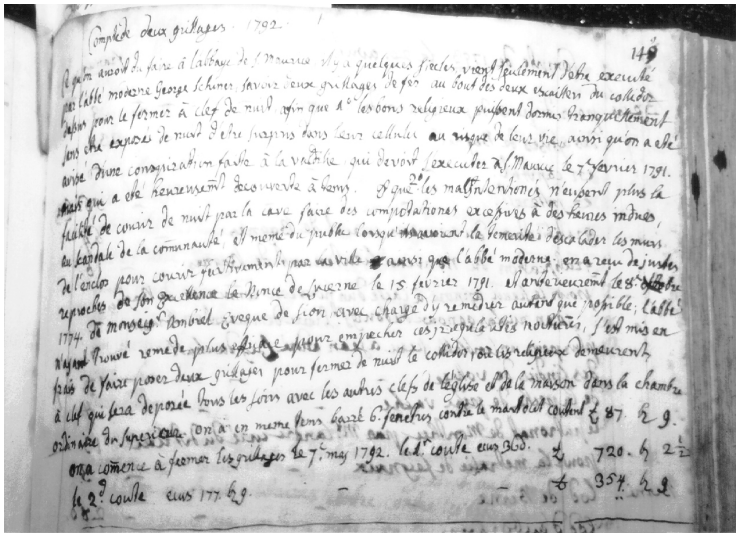 Compte de deux grillages. 1792.
149
Ce qu'on auroit du faire à l'abbaye de S. Maurice il y a quelques siecles, vient seulement d'etre executé
par l'abbé moderne George Schiner, savoir deux grillages de fer au bout des deux escaliers du collidor
pour le fermer à clef de nuit, afin que 1° les bons religieux puissent dormir tranquillement
sans etre exposés de nuit d'etre surpris dans leur cellules au risque de leur vie, ainsi qu'on a eté
avisé d'une conspiration faite à la qui devoit s'executer à S. Maurice le 7e fevrier 1791.
mais qui a eté heureusemt decouverte à tems. Et que 2° les mal intentionés n'eussent plus la
facilité de courir de nuit par la cave faire des compotationes excessives à des heures indues
au scandale de la communauté, et meme du public lorsqu'ils auront la temerité d'escalader les murs
de l'enclos pour courir furtivement par la ville ainsi que l'abbé moderne en a reçu de justes
reproches de son excellence le Nonce de Lucerne le 15 fevrier 1791. et anterieuremt le 8e octobre
1774. de monseigr Ambuel eveque de Sion, avec charge d'y remedier autant que possible; l'abbé
n'ayant trouvé remede plus efficace pour empecher ces nocturnes, s'est mis en
frais de faire poser deux grillages pour fermer de nuit le collidor, où les religieux demeurent,
à clef qui sera deposée tous les soirs avec les autres clefs de l'eglise et de la maison dans la chambre
ordinaire du superieur. On a en meme tems barré 6. fenetres contre le coutent ℔ 87. ƕ 9.
on a comencé à fermer les grillages le 7e may 1792. le 1r coute ecus 360. ℔ 720. ƕ 2 1/2
le 2d coute ecus 177. ƕ 9. — — ℔ 354. ƕ 9